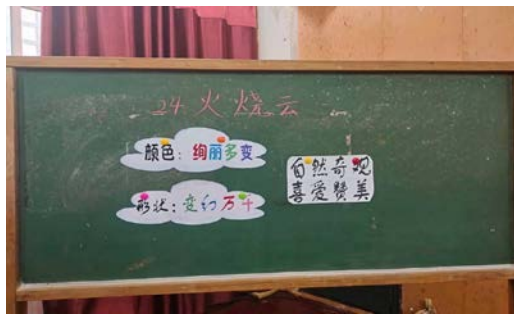 24 火烧云
颜色：绚丽多变
形状：变幻万千
自然奇观
喜爱赞美